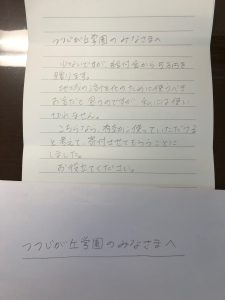 つつじが丘学園のみなさまへ
少ないですが、給付金から5万円を
贈ります。
地域の活性化のために使うべき
お金だと思うのですが、私には使い
きれません。
こちらなら、有効に使っていただける
と考えて、寄付させてもらうことに
しました。
お役立てください。
つつじが丘学園のみなさまへ